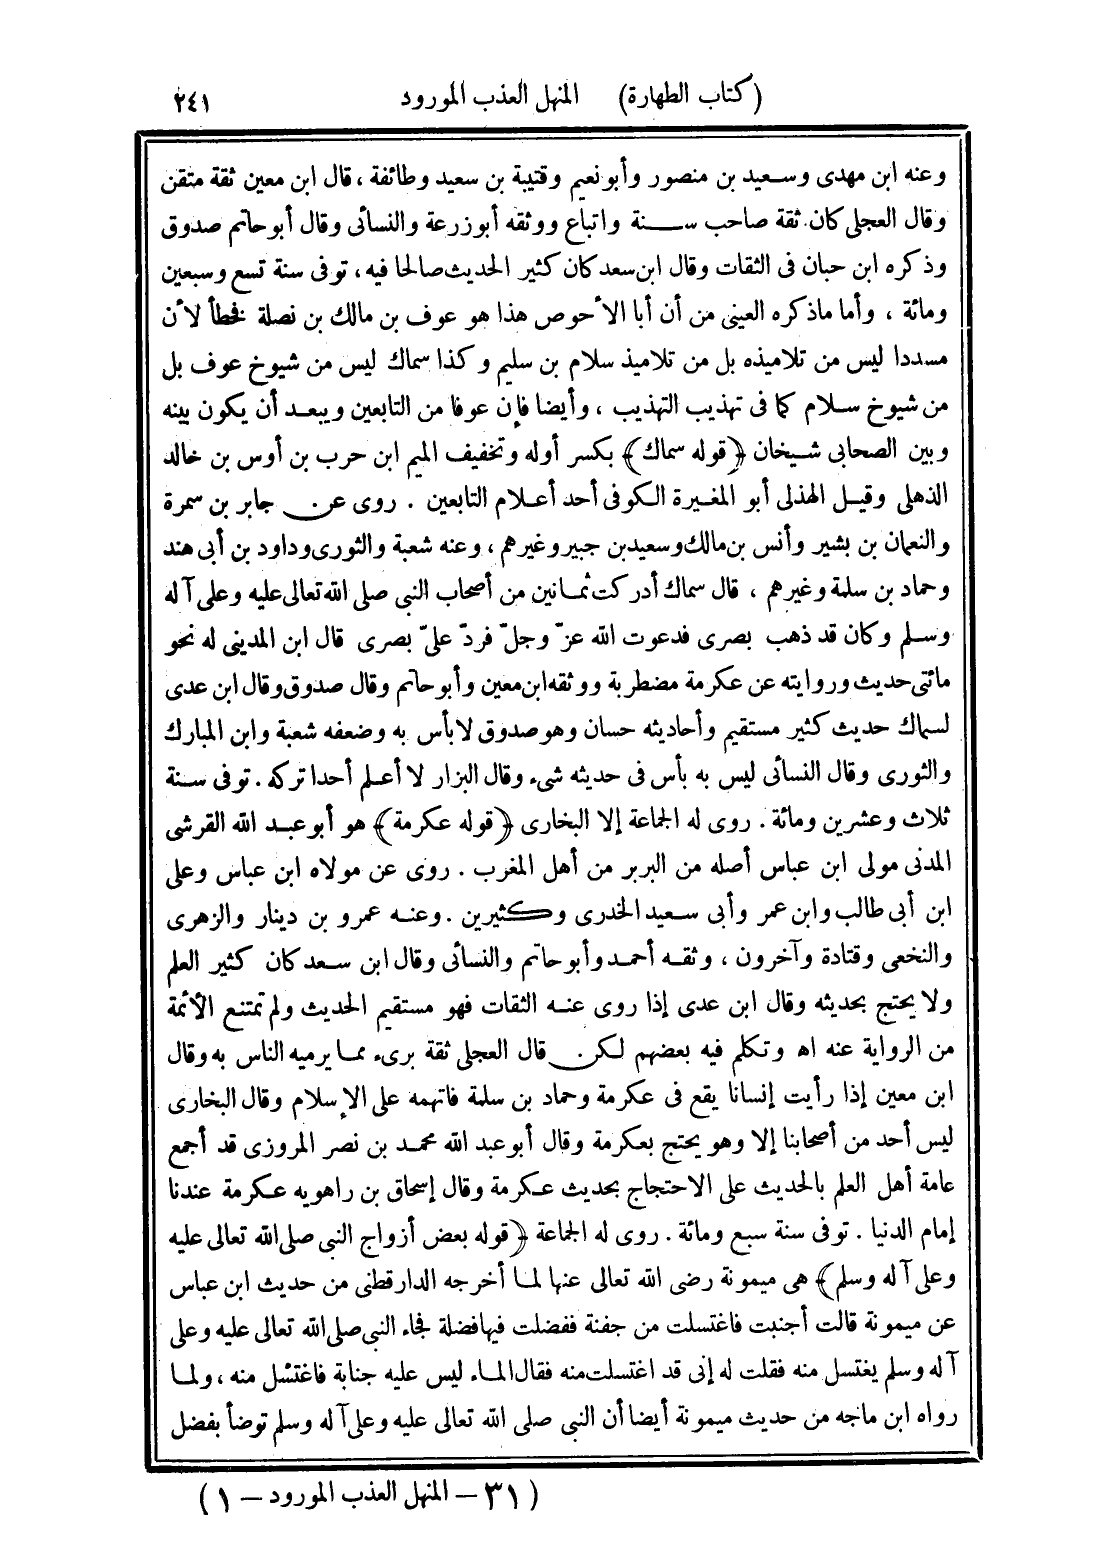 (كتاب الطهارة) المنهل العذب المورود ٢٤١
وعنه ابن مهدى وسعيد بن منصور وأبو نعيم وقتيبة بن سعيد وطائفة ، قال ابن معين ثقة متقن
وقال العجلى كان ثقة صاحب سنة واتباع ووثقه أبو زرعة والنسائى وقال أبو حاتم صدوق
وذكره ابن حبان فى الثقات وقال ابن سعد كان كثير الحديث صالحا فيه ، توفى سنة تسع وسبعين
ومائة ، وأما ماذكره العينى من أن أبا الأحوص هذا هو عوف بن مالك بن نصلة فخطأ لأن
مسددا ليس من تلاميذه بل من تلاميذ سلام بن سليم وكذا سماك ليس من شيوخ عوف بل
من شيوخ سلام كما فى تهذيب التهذيب ، وأيضا فإن عوفا من التابعين ويبعد أن يكون بينه
وبين الصحابى شيخان ﴿قوله سماك﴾ بكسر أوله وتخفيف الميم ابن حرب بن أوس بن خالد
الذهلى وقيل الهذلى أبو المغيرة الكوفى أحد أعلام التابعين . روى عن جابر بن سمرة
والنعمان بن بشير وأنس بن مالك وسعيد بن جبير وغيرهم ، وعنه شعبة والثورى وداود بن أبى هند
وحماد بن سلمة وغيرهم ، قال سماك أدركت ثمانين من أصحاب النبى صلى الله تعالى عليه وعلى آله
وسلم وكان قد ذهب بصرى فدعوت الله عزّ وجلّ فردّ علىّ بصرى قال ابن المدينى له نحو
مائتى حديث وروايته عن عكرمة مضطربة ووثقه ابن معين وأبو حاتم وقال صدوق وقال ابن عدى
لسماك حديث كثير مستقيم وأحاديثه حسان وهو صدوق لابأس به وضعفه شعبة وابن المبارك
والثورى وقال النسائى ليس به بأس فى حديثه شىء وقال البزار لا أعلم أحدا تركه . توفى سنة
ثلاث وعشرين ومائة . روى له الجماعة إلا البخارى ﴿قوله عكرمة﴾ هو أبو عبد الله القرشى
المدنى مولى ابن عباس أصله من البربر من أهل المغرب . روى عن مولاه ابن عباس وعلى
ابن أبى طالب وابن عمر وأبى سعيد الخدرى وكثيرين . وعنه عمرو بن دينار والزهرى
والنخعى وقتادة وآخرون ، وثقه أحمد وأبو حاتم والنسائى وقال ابن سعد كان كثير العلم
ولا يحتج بحديثه وقال ابن عدى إذا روى عنه الثقات فهو مستقيم الحديث ولم تمتنع الأئمة
من الرواية عنه اه وتكلم فيه بعضهم لكن قال العجلى ثقة برىء مما يرميه الناس به وقال
ابن معين إذا رأيت إنسانا يقع فى عكرمة وحماد بن سلمة فاتهمه على الإسلام وقال البخارى
ليس أحد من أصحابنا إلا وهو يحتج بعكرمة وقال أبو عبد الله محمد بن نصر المروزى قد أجمع
عامة أهل العلم بالحديث على الاحتجاج بحديث عكرمة وقال إسحاق بن راهويه عكرمة عندنا
إمام الدنيا . توفى سنة سبع ومائة . روى له الجماعة ﴿قوله بعض أزواج النبى صلى الله تعالى عليه
وعلى آله وسلم﴾ هى ميمونة رضى الله تعالى عنها لما أخرجه الدارقطنى من حديث ابن عباس
عن ميمونة قالت أجنبت فاغتسلت من جفنة ففضلت فيها فضلة فجاء النبى صلى الله تعالى عليه وعلى
آله وسلم يغتسل منه فقلت له إنى قد اغتسلت منه فقال الماء ليس عليه جنابة فاغتسل منه ، ولما
رواه ابن ماجه من حديث ميمونة أيضا أن النبى صلى الله تعالى عليه وعلى آله وسلم توضأ بفضل
(٣١ – المنهل العذب المورود – ١)